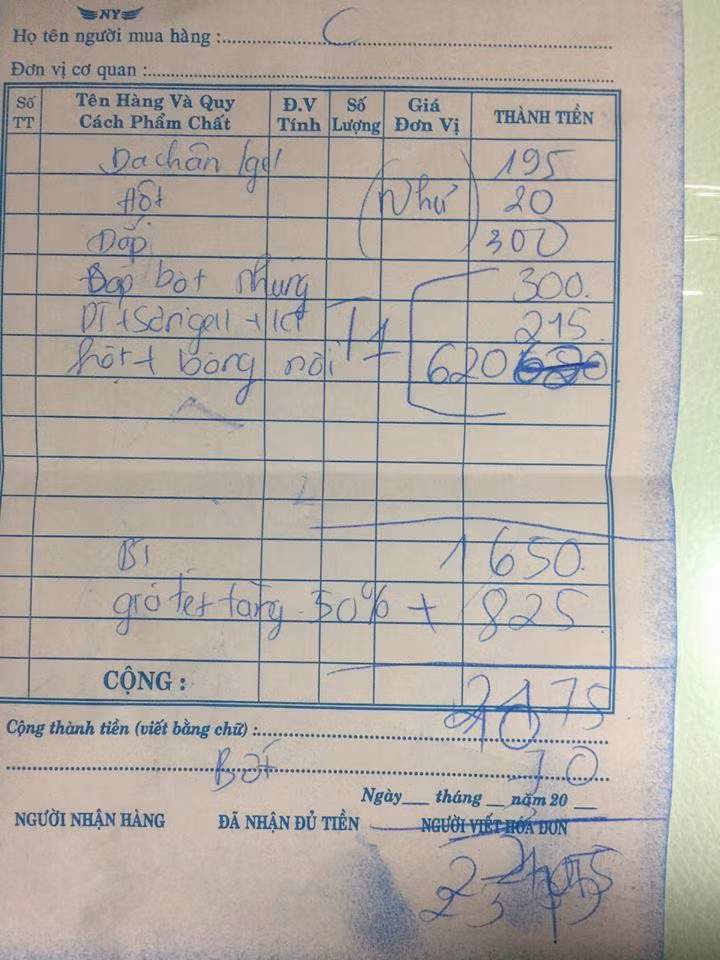 NY
Họ tên người mua hàng : C
Đơn vị cơ quan :
Số TT Tên Hàng Và Quy Cách Phẩm Chất Đ.V Tính Số Lượng Giá Đơn Vị THÀNH TIỀN
Da chân /gel 195
Hột (Như) 20
Đắp 300
Đắp bột nhũng 300.
DT + Sơn gel + 215.
hột + bông nổi T1 620
1 650.
giá tết tăng 50% + 825
CỘNG : 2475
Cộng thành tiền (viết bằng chữ) :
Bớt
Ngày___ tháng __ năm 20 __
NGƯỜI NHẬN HÀNG ĐÃ NHẬN ĐỦ TIỀN NGƯỜI VIẾT HÓA ĐƠN